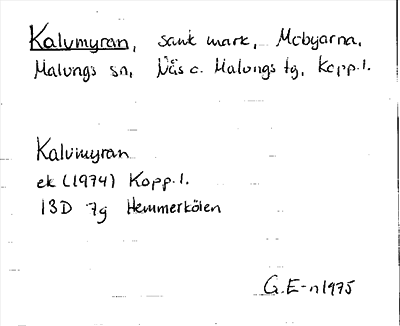 Kalvmyran, sank mark, Mobyarna,
Malungs sn, Näs o. Malungs tg, Kopp.l.
Kalvmyran
ek (1974) Kopp.l.
13D 7g Hemmerkölen
G.E-n 1975